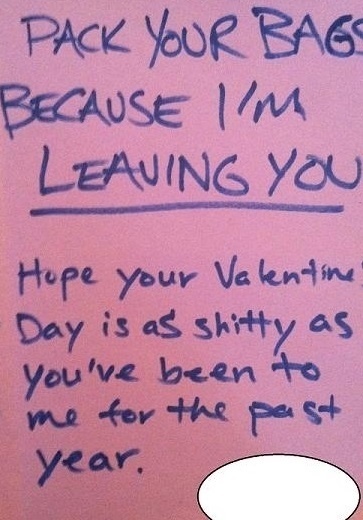 PACK YOUR BAGS
BECAUSE I'M
LEAVING YOU
Hope your Valentine
Day is as shitty as
you've been to
me for the past
year.